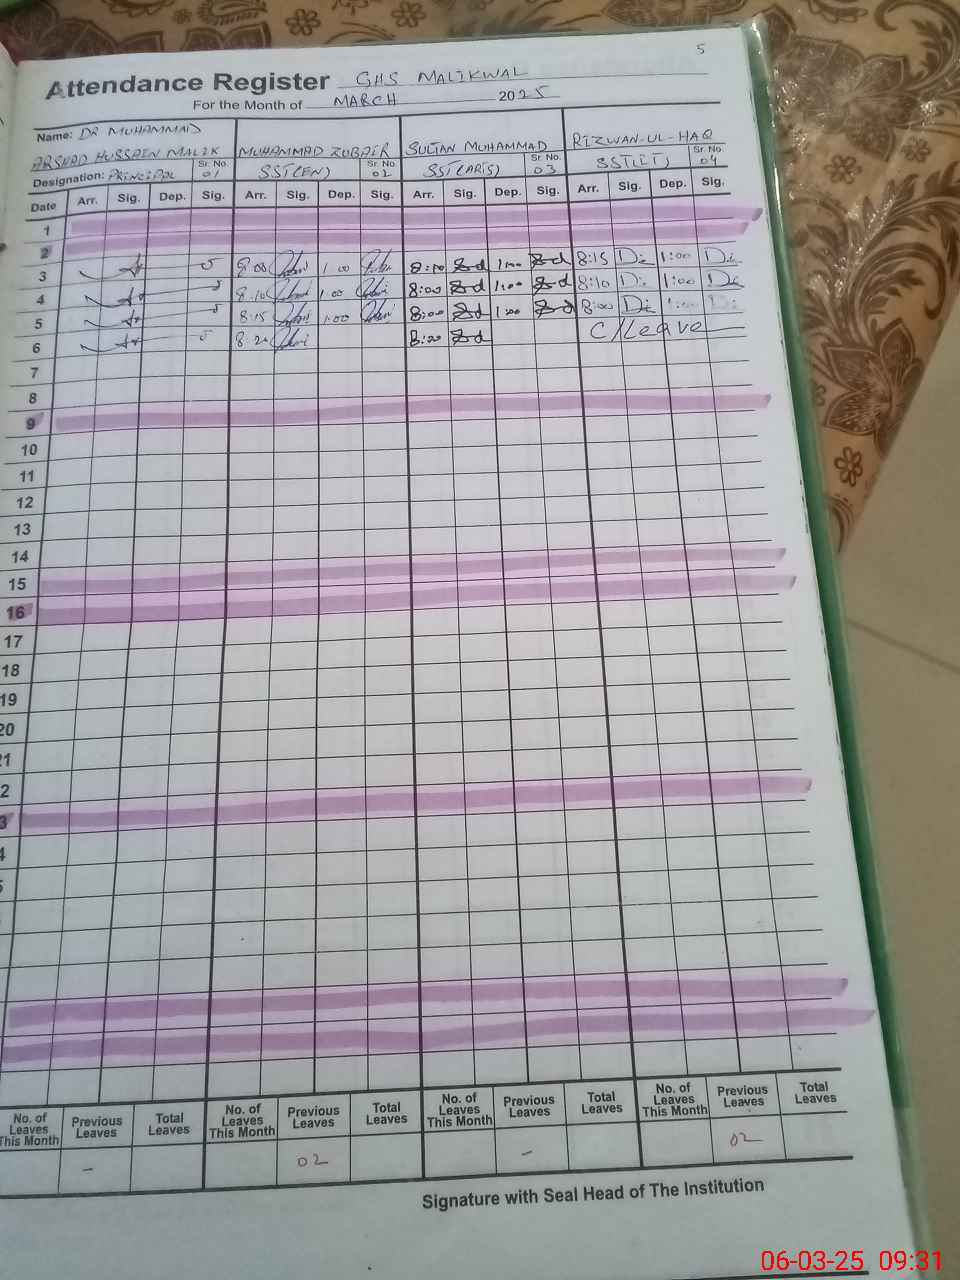 5
Attendance Register GHS MALIKWAL
For the Month of MARCH 2025
Name: DR MUHAMMAD
ARSHAD HUSSAIN MALIK MUHAMMAD ZUBAIR SULTAN MUHAMMAD RIZWAN-UL-HAQ
Designation: PRINCIPAL Sr. No. 01 SST(EN) Sr. No. 02 SST(ARTS) Sr. No. 03 SST(IT) Sr. No. 04
Date Arr. Sig. Dep. Sig. Arr. Sig. Dep. Sig. Arr. Sig. Dep. Sig. Arr. Sig. Dep. Sig.
1
2
3 8:00 1:00 8:10 1:00 8:15 1:00
4 8:10 1:00 8:00 1:00 8:10 1:00
5 8:15 1:00 8:00 1:00 8:00 1:00
6 8:20 8:20 C/Leave
7
8
9
10
11
12
13
14
15
16
17
18
19
20
21
2
3
4
No. of Leaves This Month Previous Leaves Total Leaves No. of Leaves This Month Previous Leaves Total Leaves No. of Leaves This Month Previous Leaves Total Leaves No. of Leaves This Month Previous Leaves Total Leaves
- 02 - 02
Signature with Seal Head of The Institution
06-03-25 09:31